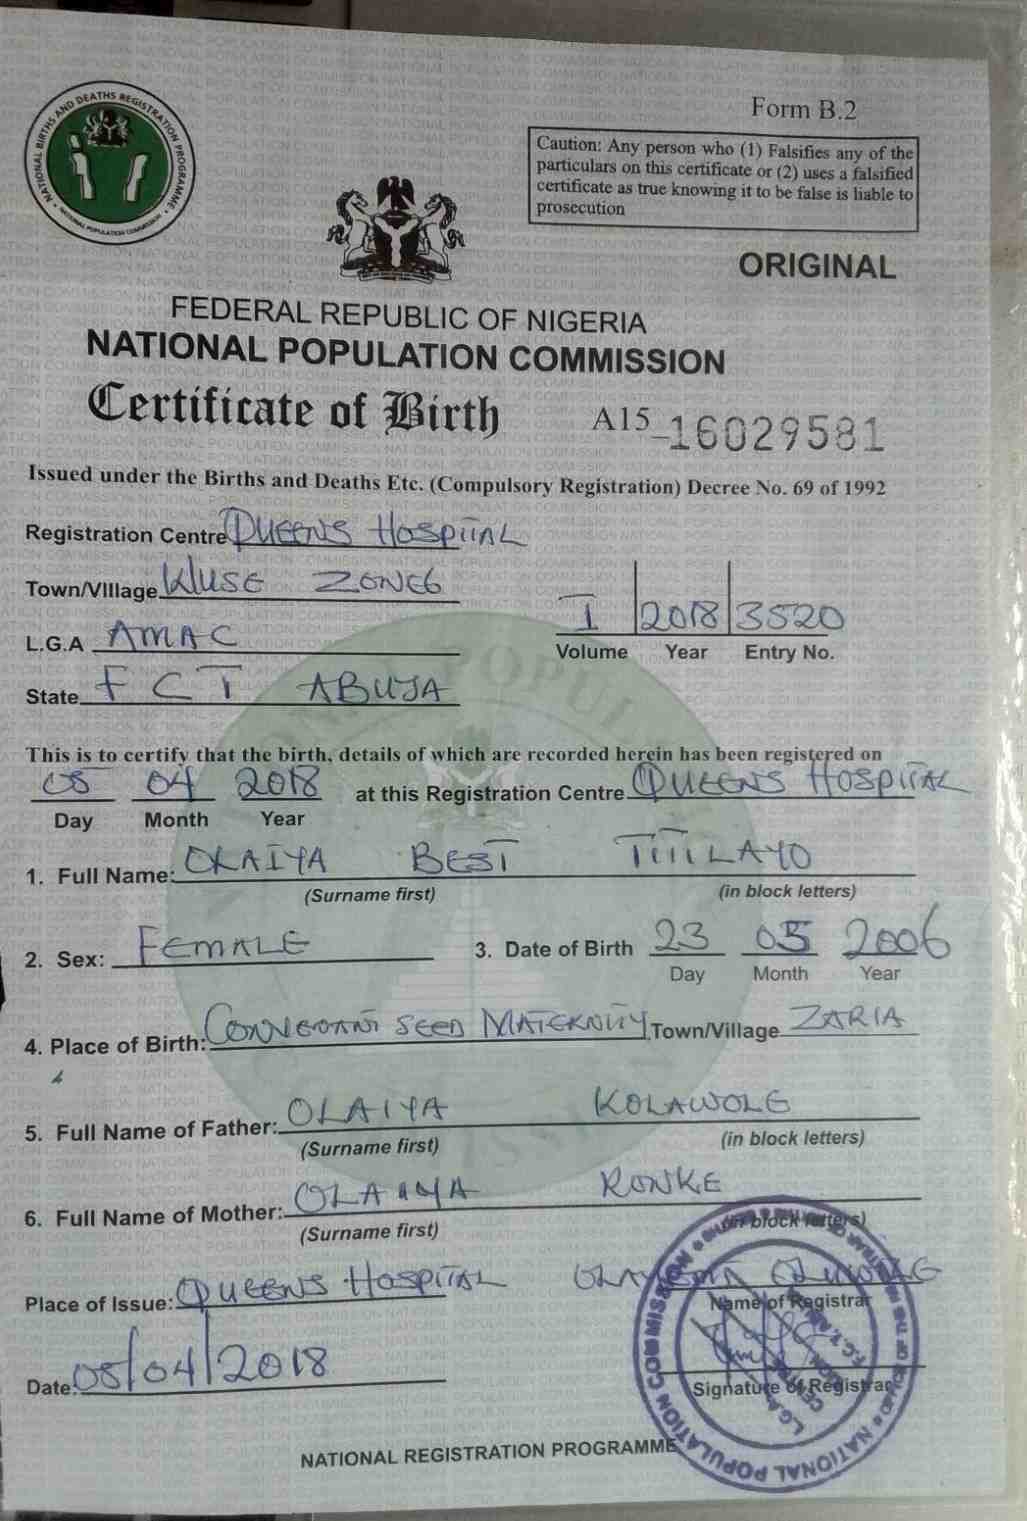 NATIONAL BIRTHS AND DEATHS REGISTRATION PROGRAMME
NATIONAL POPULATION COMMISSION
Form B.2
Caution: Any person who (1) Falsifies any of the
particulars on this certificate or (2) uses a falsified
certificate as true knowing it to be false is liable to
prosecution
ORIGINAL
FEDERAL REPUBLIC OF NIGERIA
NATIONAL POPULATION COMMISSION
Certificate of Birth A15 -16029581
Issued under the Births and Deaths Etc. (Compulsory Registration) Decree No. 69 of 1992
Registration Centre QUEENS HOSPITAL
Town/Village WUSE ZONE6
L.G.A AMAC
I 2018 3520
Volume Year Entry No.
State F C T ABUJA
This is to certify that the birth, details of which are recorded herein has been registered on
05 04 2018 at this Registration Centre QUEENS HOSPITAL
Day Month Year
1. Full Name: OLAIYA BEST TITILAYO
(Surname first) (in block letters)
2. Sex: FEMALE 3. Date of Birth 23 05 2006
Day Month Year
4. Place of Birth: SEED MATERNITY Town/Village ZARIA
5. Full Name of Father: OLAIYA KOLAWOLE
(Surname first) (in block letters)
6. Full Name of Mother: OLAIYA RONKE
(Surname first) (in block letters)
Place of Issue: QUEENS HOSPITAL
Name of Registrar
Date: 05/04/2018
Signature of Registrar
NATIONAL POPULATION COMMISSION
NATIONAL REGISTRATION PROGRAMME